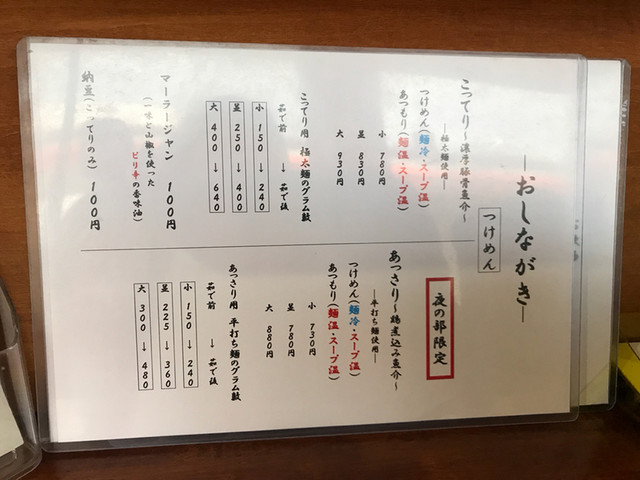 ―おしながき―
つけめん
こってり～濃厚豚骨魚介～
―極太麺使用―
つけめん(麺冷・スープ温)
あつもり(麺温・スープ温)
小 780円
並 830円
大 930円
こってり用 極太麺のグラム数
茹で前 → 茹で後
小 150 → 240
並 250 → 400
大 400 → 640
マーラージャン 100円
(一味と山椒を使った
ピリ辛の香味油)
納豆(こってりのみ) 100円
夜の部限定
あっさり～鶏煮込み魚介～
―平打ち麺使用―
つけめん(麺冷・スープ温)
あつもり(麺温・スープ温)
小 730円
並 780円
大 880円
あっさり用 平打ち麺のグラム数
茹で前 → 茹で後
小 150 → 240
並 225 → 360
大 300 → 480